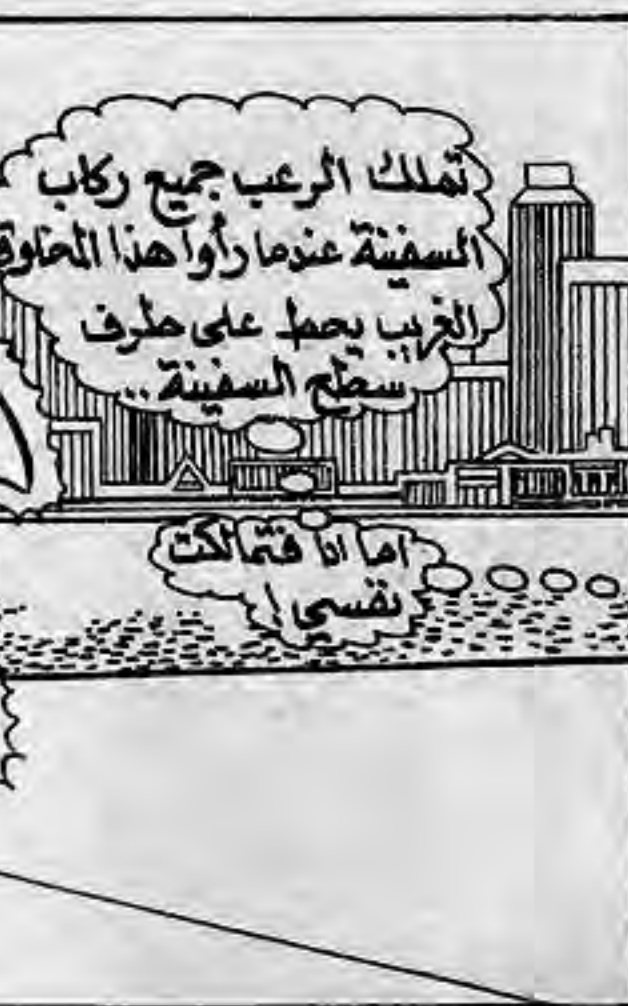 تملك الرعب جميع ركاب
السفينة عندما رأوا هذا المخلوق
الغريب يحط على طرف
سطح السفينة..
اما انا فتمالكت
نفسي!